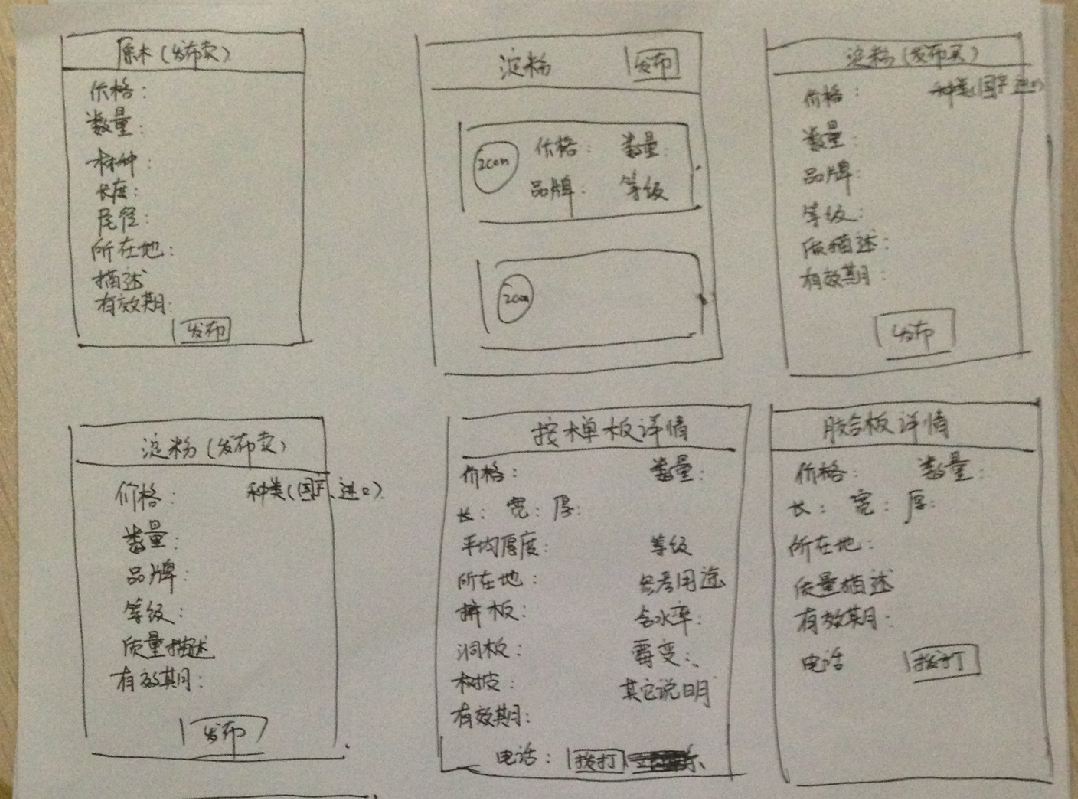 原木(发布卖)
价格:
数量:
材种:
长度:
尾径:
所在地:
描述
有效期:
发布
淀粉 发布
icon 价格: 数量:
品牌: 等级
icon
淀粉(发布买)
价格: 种类(国产 进口)
数量:
品牌:
等级:
质描述:
有效期:
发布
淀粉(发布卖)
价格: 种类(国产、进口)
数量:
品牌:
等级:
质量描述
有效期:
发布
按木单板详情
价格: 数量:
长: 宽: 厚:
平均厚度: 等级
所在地: 参考用途
拼板: 含水率:
洞板: 霉变:
树皮: 其它说明
有效期:
电话: 拨打
胶合板详情
价格: 数量:
长: 宽: 厚:
所在地:
质量描述
有效期:
电话 拨打